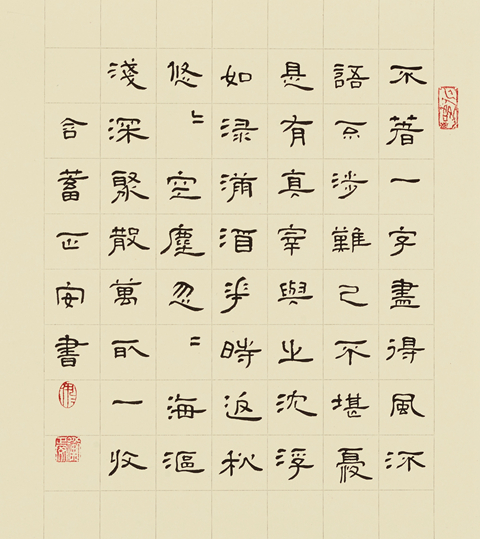 不著一字盡得風流
語不涉難已不堪憂
是有真宰與之沈浮
如淥滿酒花時返秋
悠〻空塵忽〻海漚
淺深聚散萬取一收
含蓄正安書